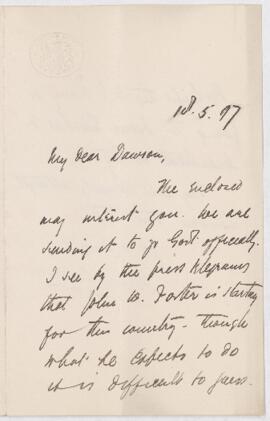 18. 5. 97
My dear Dawson,
The enclosed
may interest you. We are
sending it to yr Govt. officially.
I see by the press telegrams
that John W. Foster is starting
for this country - though
what he expects to do
it is difficult to guess.